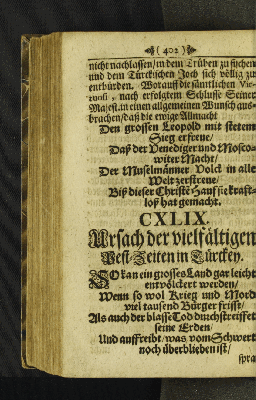 ( 402 )
nicht nachlassen / in dem Trüben zu fischen
und dem Türckischen Joch sich völlig zu
entbürden. Worauff die sämtlichen Vir-
tuosi, nach erfolgtem Schlusse Seiner
Majest. in einen allgemeinen Wunsch aus-
brachen / daß die ewige Allmacht
Den grossen Leopold mit stetem
Sieg erfreue /
Daß der Venediger und Mosco-
witer Macht /
Der Muselmänner Volck in alle
Welt zerstreue /
Biß dieser Christē Hauf sie kraft-
loß hat gemacht.
CXLIX.
Ursach der vielfältigen
Pest-Zeiten in Türckey.
SO kan ein grosses Land gar leicht
entvölckert werden /
Wenn so wol Krieg und Mord
viel tausend Bürger frisst /
Als auch der blasse Tod durchstreiffet
seine Erden /
Und auffreibt / was vom Schwert
noch überblieben ist /
spra